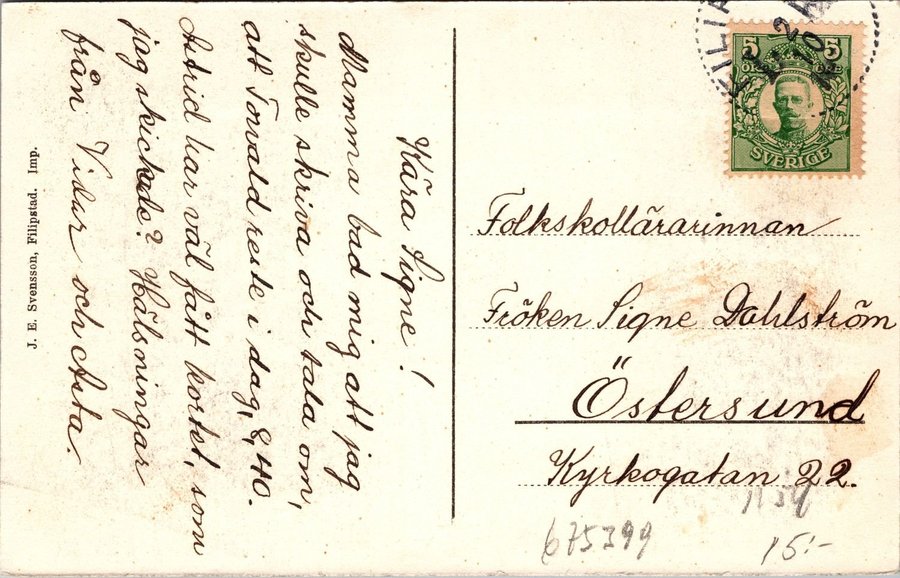 Kära Signe!
Mamma bad mig att jag
skulle skriva och tala om,
att Torvald reste i dag, 8,40.
Astrid har väl fått kortet, som
jag skickade? Hälsningar
från Vidur och Asta.
J. E. Svensson, Filipstad. Imp.
5 5
ÖRE ÖRE
SVERIGE
Folkskollärarinnan
Fröken Signe Dahlström
Östersund
Kyrkogatan 22.
675399
15:-